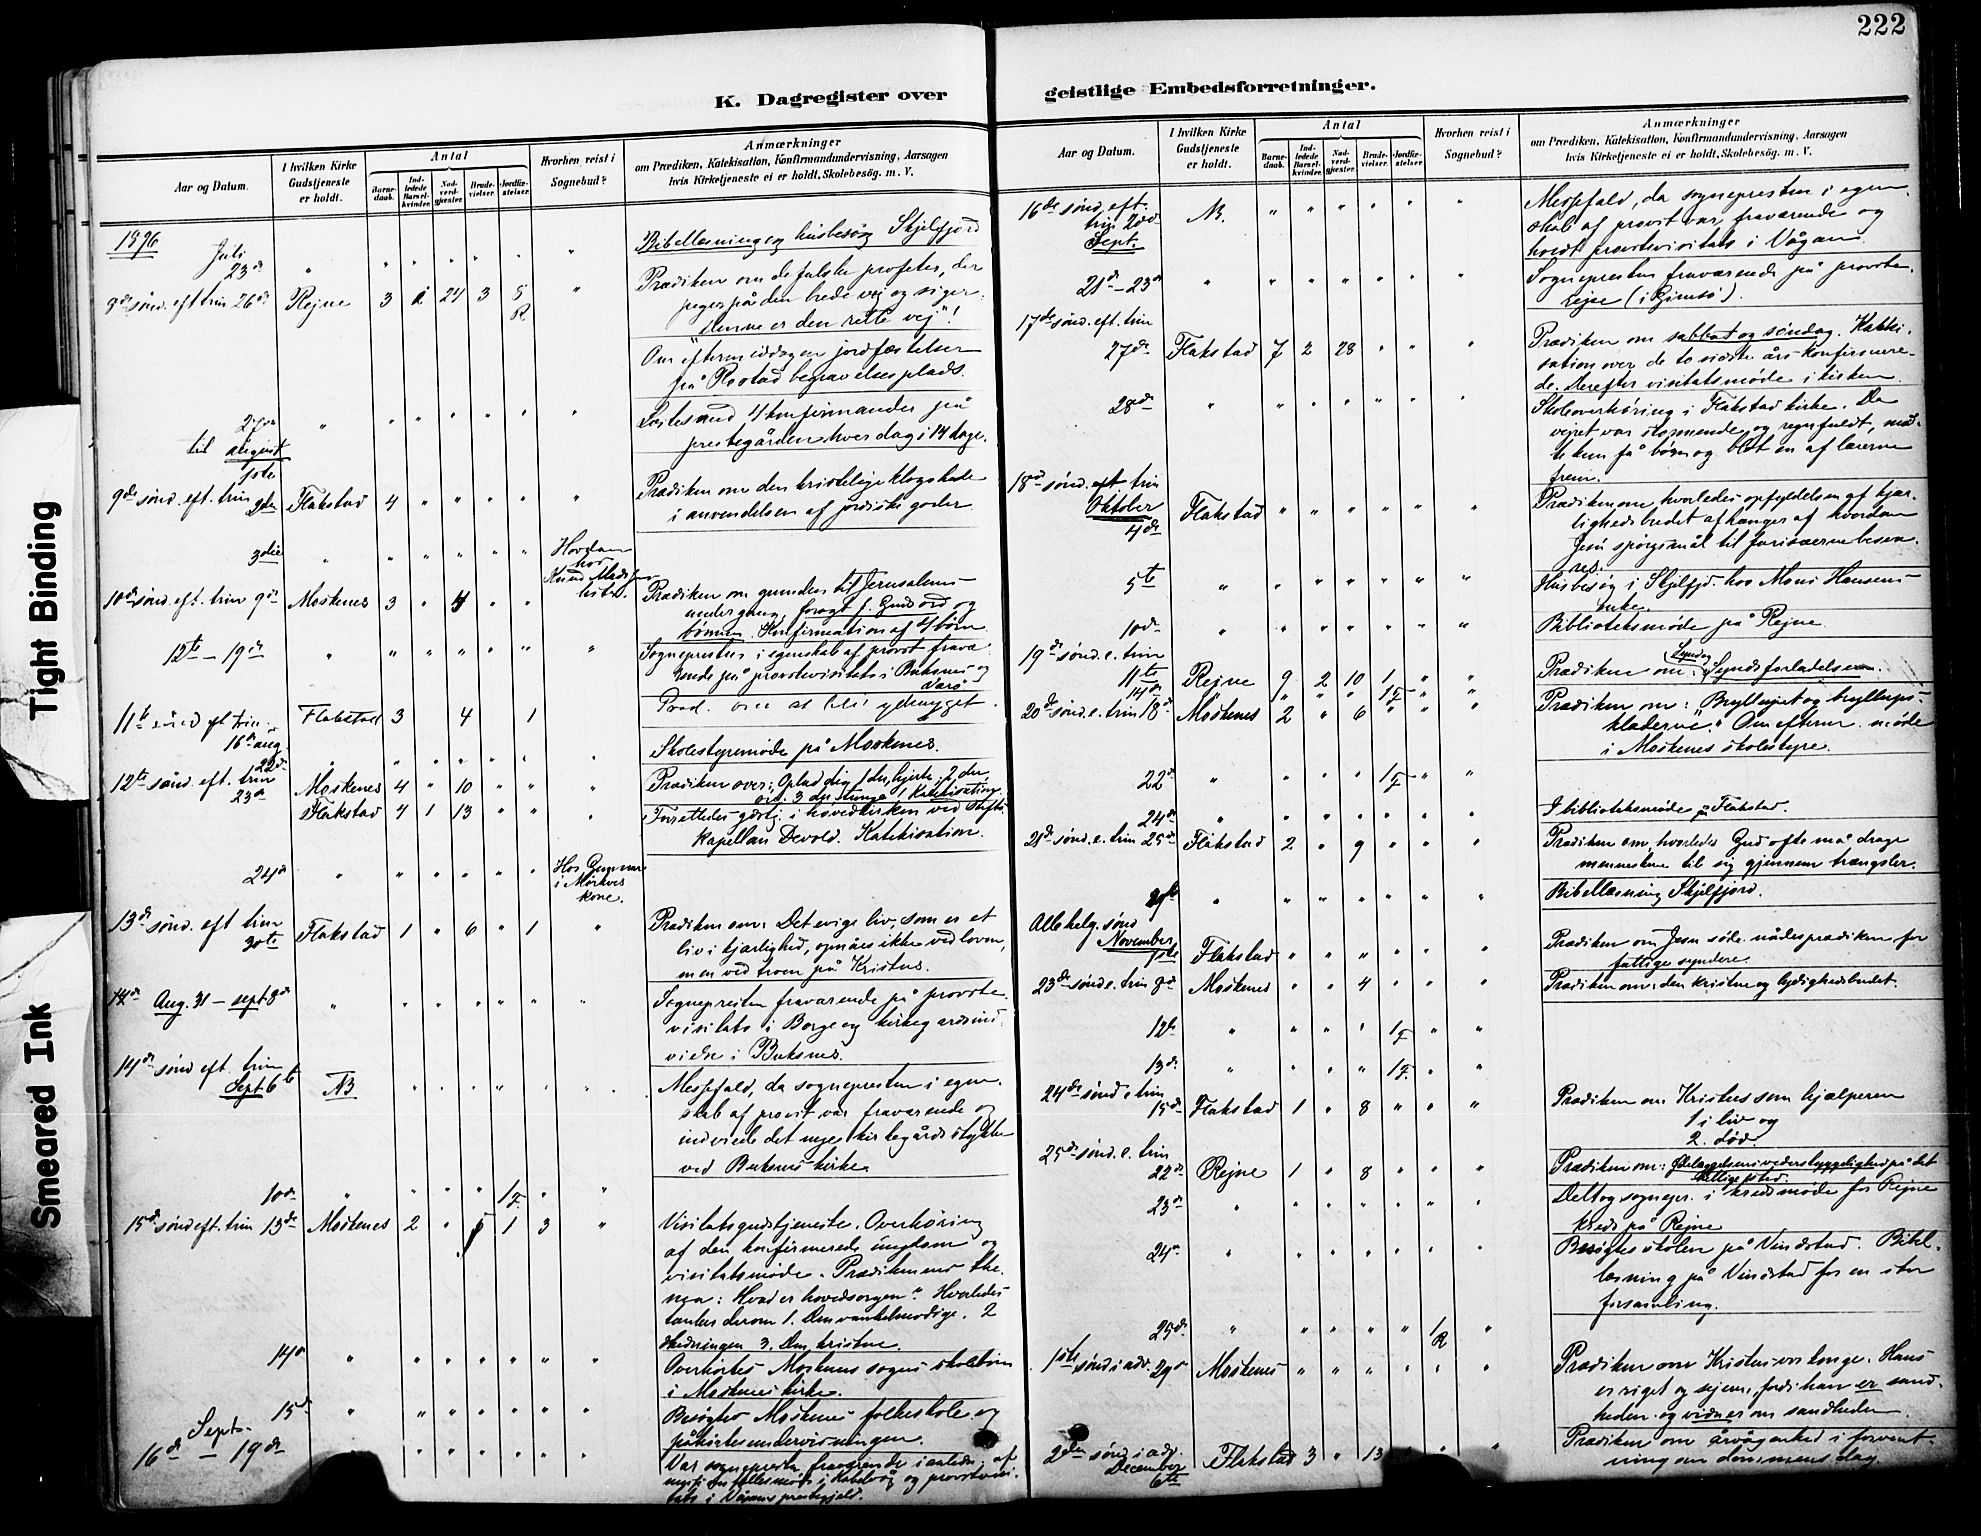 222
K. Dagregister over
Aar og Datum.
I hvilken Kirke
Gudstjeneste
er holdt.
Antal
Barne-
daab.
Ind-
ledede
Barsel-
kvinder.
Nad-
verd-
gjæster.
Brude-
vielser.
Jordfæ-
stelser.
Hvorhen reist i
Sognebud?
Anmærkninger
om Prædiken, Katekisation, Konfirmandundervisning, Aarsagen
hvis Kirketjeneste ei er holdt, Skolebesög. m. V.
1896
Juli
23de " " " " " " " Bibellæsning og husbesøg Skjelfjord
8de sønd. eft trin 26de Rejne 3 2 24 3 5 " Prædiken om de falske profeter, der
R peger på den brede vej og siger:
Denne er den rette vej"!
Om eftermiddagen jordfæstelser
på Rostad begravelsesplads.
27de " " " " " " " Læstes med 4 konfirmander på
til august prestegården hver dag i 14 dage.
1ste
9de sønd. eft. trin 2den Flakstad 4 " " " " " Prædiken om den kristelige klogskab
i anvendelsen af jordiske goder
3die " " " " " " Hovdan
hos
Knud Mads
10de sønd. eft. trin 9de Moskenes 3 " 4 " " Prædiken om grunden til Jerusalems
undergang, foragt f. Guds ord og
bønnen. Konfirmation af 4 børn.
12te – 19de " " " " " " " Sognepresten i egenskab af provst fravæ-
rende på provstevisitats i Buksnes og
11te sønd eft trin Flakstad 3 4 1 Præd. over at blive ydmyget.
16de aug.
22de " " " " " " Skolestyremøde på Moskenes.
12te sønd. eft. trin
23de Moskenes 4 " 10 " " " Prædiken over: Oplad dig 1 der, hjerte, 2 der
ord, 3 der tunge! Katekisation
Flakstad 4 1 13 " " " Forrettedes gdstj. i hovedkirken ved Stifts-
kapellan Devold. Katekisation.
24de " " " " " " Hos
i Mörkves
kone.
13de sønd. eft trin
30te Flakstad 1 " 6 " 1 " Prædiken om: Det evige liv, som er et
liv i kjærlighed, opnåes ikke ved loven,
men ved troen på Kristus.
Aug. 31 – sept 8de " " " " " " " Sognepresten fraværende på provste-
visitats i Borge og kirkegårdsind-
vielse i Buksnes.
14de sønd eft. trin
Sept 6te NB " " " " " " Messefald, da sognepresten i egen-
skab af provst var fraværende og
indviede det nye kirkegårdsstykke
ved Buksnes kirke
10de " " " " 1 " "
F
15de sønd eft. trin 13de Moskenes 2 " 1 3 " Visitatsgudstjeneste. Overhøring
af den konfirmerede ungdom og
visitatsmøde. Prædikenens the-
ma: Hvad er hovedsorgen? Hvorledes
tænkes derom 1. Den vankelmodige. 2
Hedningen 3. Den kristne.
14de " " " " " " " Overhørtes Moskenes sogns skolebørn
i Moskenes kirke.
15de " " " " " " " Besøgtes Moskenes folkeskole og
påhørtes undervisningen.
Sept.
16de – 19de " " " " " Var sognepresten fraværende i anledn. af
møde i Kabelvåg og provstevisi-
tats i Vågans prestegjeld.
geistlige Embedsforretninger.
Aar og Datum.
I hvilken Kirke
Gudstjeneste
er holdt.
Antal
Barne-
daab.
Ind-
ledede
Barsel-
kvinder.
Nad-
verd-
gjæster.
Brude-
vielser.
Jordfæ-
stelser.
Hvorhen reist i
Sognebud?
Anmærkninger
om Prædiken, Katekisation, Konfirmandundervisning, Aarsagen
hvis Kirketjeneste ei er holdt, Skolebesög. m. V.
16de sønd. eft.
trin 20de NB. " " " " " " Messefald, da sognepresten i egen-
Sept. skab af provst var fraværende og
holdt provstevisitats i Vågan.
21de – 23de " " " " " " " Sognepresten fraværende på provste-
rejse (i Gimsø).
17de sønd. eft. trin
27de Flakstad 7 2 28 " " " Prædiken om sabbat og søndag. Kateki-
sation over de to sidste års konfirmere-
de. Derefter visitatsmøde i kirken.
28de " " " " " " " Skoleoverhøring i Flakstad kirke. Da
vejret var stormende og regnfuldt, mød-
te kun få børn og blot en af lærerne
frem.
18de sønd. eft trin
Oktober
4de Flakstad " " " " " " Prædiken om, hvorledes opfyldelsen af kjær-
lighedsbudet afhænger af hvordan
Jesu spørgsmål til farisæerne besva-
res.
5te " " " " " " " Husbesøg i Skjelfjd. hos Mons Hansens
enke.
10de " " " " " " " Biblioteksmøde på Rejne
19de sønd. e. trin
11te Rejne 9 2 10 1 " " Prædiken om: Synd og Syndsforladelsen.
14de " " " " 1F " "
20de sønd. e. trin 18de Moskenes 2 " 6 " " " Prædiken om: Bryllupet og bryllups-
klæderne". Om efterm. møde
i Moskenes skolestyre.
22de " " " " 1F " "
24de " " " " " " " I biblioteksmøde på Flakstad.
21de sønd. e. trin 25de Flakstad 2 " 9 " " " Prædiken om, hvorledes Gud ofte må drage
menneskene til sig gjennem trængsler.
" " " " " " " Bibellæsning Skjelfjord.
Allehelg. sønd
November
1ste Flakstad " " " " " " Prædiken om Jesu søde nådesprædiken for
fattige syndere.
23de sønd e. trin 8de Moskenes " " 4 " " " Prædiken om: den kristne og lydighedsbudet.
12te " " " " 1F " "
13de " " " " 1F " "
24de sønd e trin
15de Flakstad 1 " 8 " " " Prædiken om Kristus som hjælperen
1 i liv og
2. død
25de sønd. e. trin
22de Rejne 1 " 8 " " " Prædiken om: Ødelæggelsens vederstyggelighed på det
hellige sted.
23de " " " " " " " Deltog sognepr. i kredsmøde for Rejne
kreds på Rejne
24de " " " " " " " Besøgtes skolen på Vindstad. Bibel-
læsning på Vindstad for en stor
forsamling.
25de " " " " " 1 "
R
1ste sønd i adv. 29de Moskenes " " " " " " Prædiken om Kristus vor konge. Hans
er riget og sejren, fordi han er sand-
heden og vidner om sandheden
2den sønd i adv.
December
6te Flakstad 3 " 13 " " Prædiken om årvågenhed i forvent-
ning om dommens dag.
Tight Binding
Smeared Ink